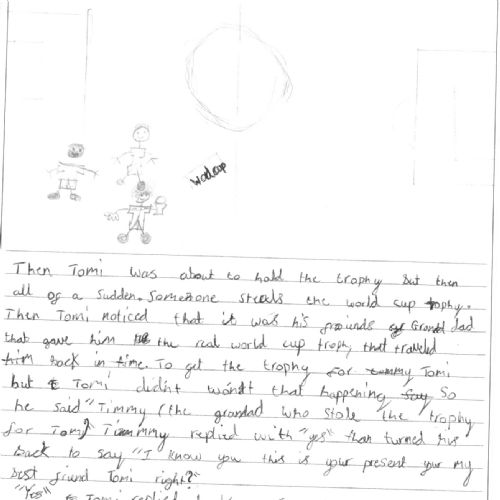 worldcup
Then Tomi was about to hold the trophy but then
all of a sudden. Someone steals the world cup trophy.
Then Tomi noticed that it was his grounds Grand dad
that gave him the real world cup trophy that traveled
him back in time. To get the trophy for Tomi
but Tomi didn't want that happening So
he said "Timmy (the grandad who stole the trophy
for Tomi? Timmy replied with "yes" than turned his
back to say "I know you this is your present your my
best friend Tomi right?"
"Yes" Tomi replied